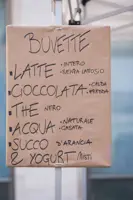 BUVETTE
• LATTE • INTERO
• SENZA LATTOSIO
• CIOCCOLATA • CALDA
• FREDDA
• THE NERO
• ACQUA • NATURALE
• GASATA
• SUCCO D'ARANCIA
& YOGURT